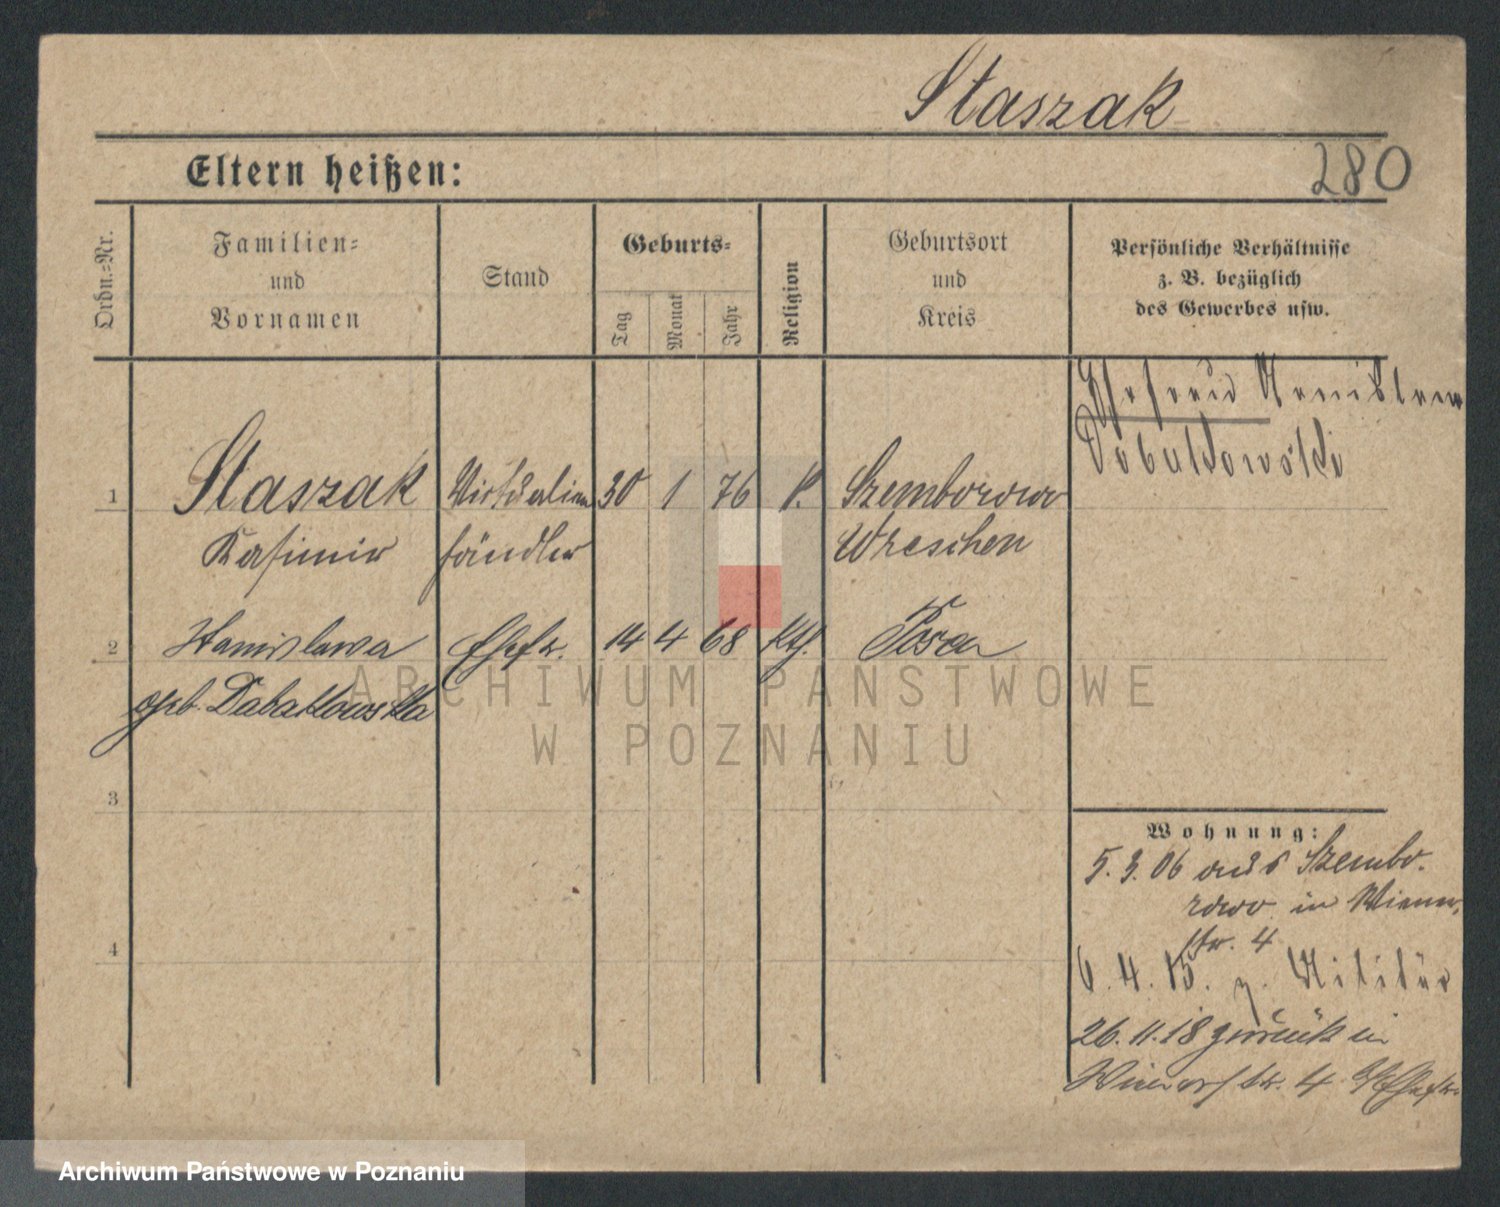 Staszak
280
Eltern heißen:
Ordn.-Nr.
Familien- und Vornamen
Stand
Geburts-
Tag
Monat
Jahr
Religion
Geburtsort und Kreis
Persönliche Verhältnisse z. B. bezüglich des Gewerbes usw.
1 Staszak Victualien 30 1 76 k. Szemborowo
Kasimir händler Wreschen
2 Stanislawa Ehefr. 14 4 68 kth. Posen
geb. Dabakowska
3
4
Wohnung:
5. 3. 06 aus Szembo-
rowo in Wiener-
str. 4
6. 4. 15. z. Militär
26. 11. 18 zurück in
Wienerstr. 4
ARCHIWUM PAŃSTWOWE
W POZNANIU
Archiwum Państwowe w Poznaniu